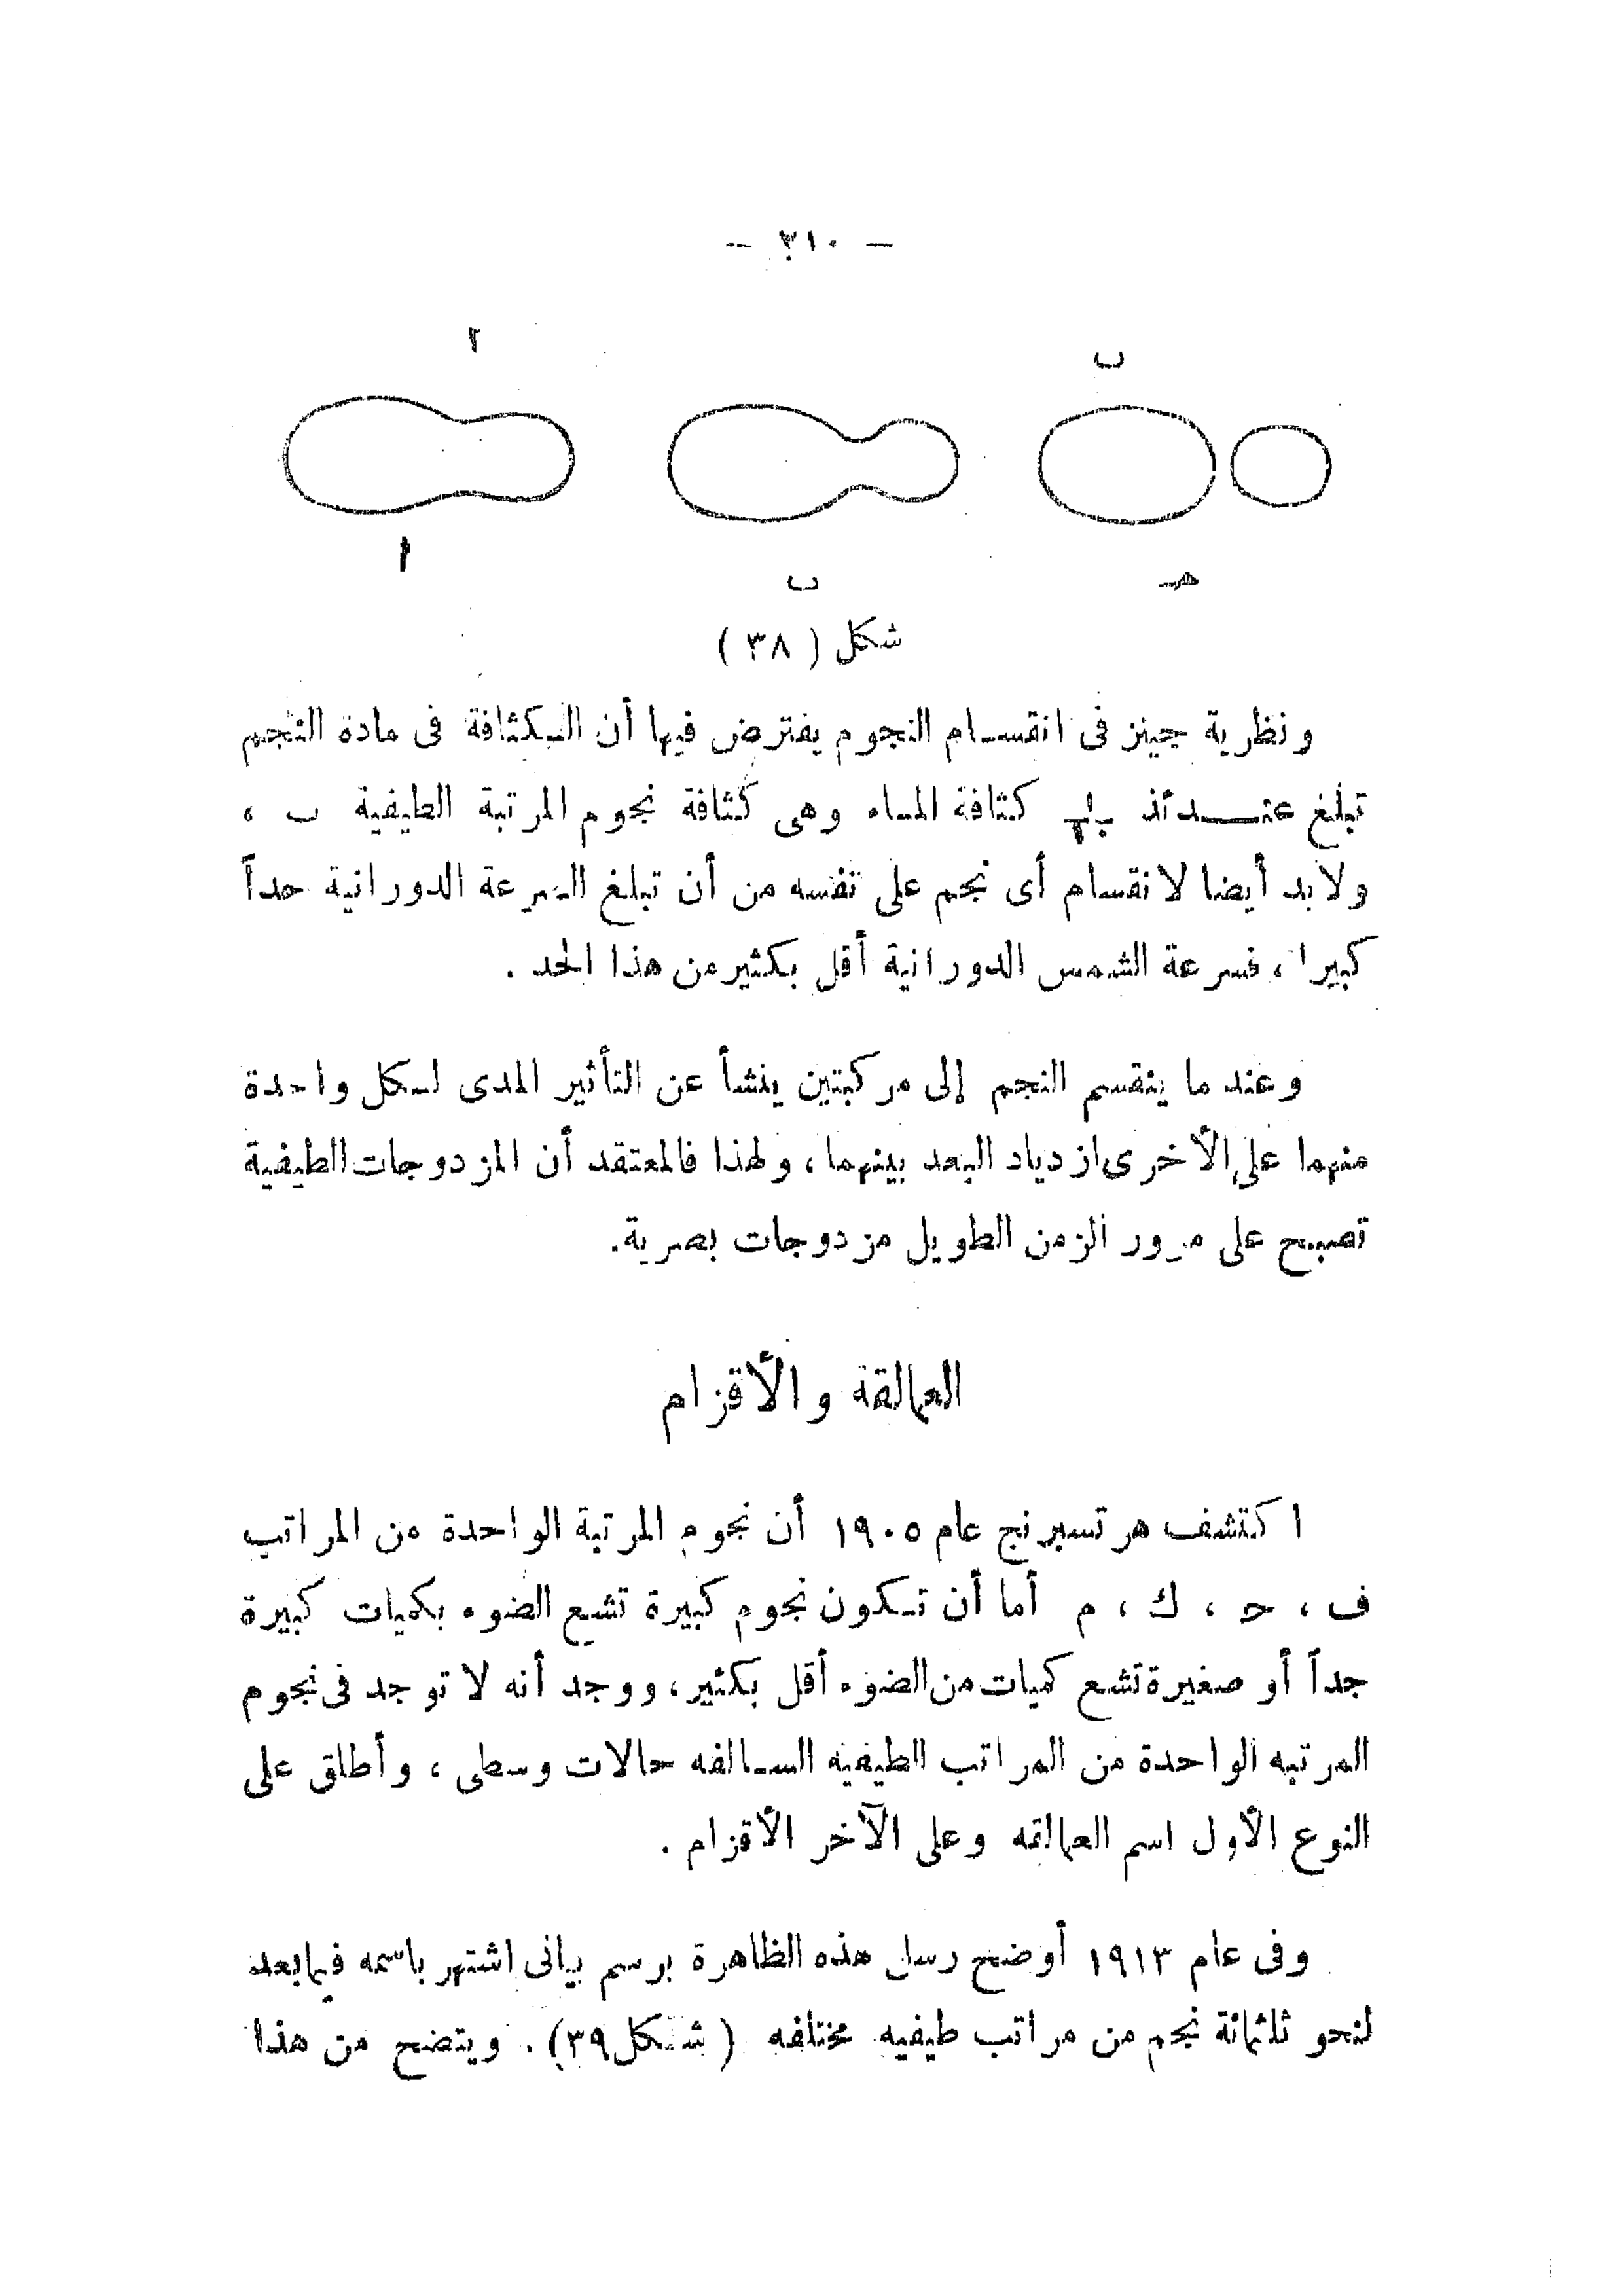 — ٣١٠ —
ا
ب
ا
ب
هـ
شكل ( ٣٨ )
ونظرية جينز فى انقسام النجوم يفترض فيها أن الكثافة فى مادة النجم
تبلغ عندئذ كثافة الماء وهى كثافة نجوم المرتبة الطيفية ب ،
ولا بد أيضا لانقسام أى نجم على نفسه من أن تبلغ السرعة الدورانية حداً
كبيرا ، فسرعة الشمس الدورانية أقل بكثير من هذا الحد .
وعند ما ينقسم النجم إلى مركبتين ينشأ عن التأثير المدى لكل واحدة
منهما على الأخرى ازدياد البعد بينهما ، ولهذا فالمعتقد أن المزدوجات الطيفية
تصبح على مرور الزمن الطويل مزدوجات بصرية .
العمالقة والأقزام
اكتشف هرتسبرنج عام ١٩٠٥ أن نجوم المرتبة الواحدة من المراتب
ف ، ح ، ك ، م أما أن تكون نجوم كبيرة تشع الضوء بكميات كبيرة
جداً أو صغيرة تشع كميات من الضوء أقل بكثير ، ووجد أنه لا توجد فى نجوم
المرتبه الواحدة من المراتب الطيفيه السالفه حالات وسطى ، وأطلق على
النوع الأول اسم العمالقه وعلى الآخر الأقزام .
وفى عام ١٩١٣ أوضح رسل هذه الظاهرة برسم بيانى اشتهر باسمه فيما بعد
لنحو ثلثمائة نجم من مراتب طيفيه مختلفه ( شكل ٣٩ ) . ويتضح من هذا